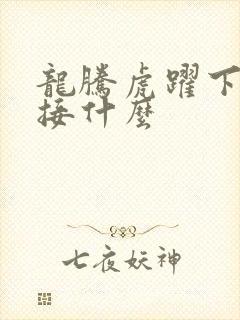 龍騰虎躍下
接什麼
七夜妖神